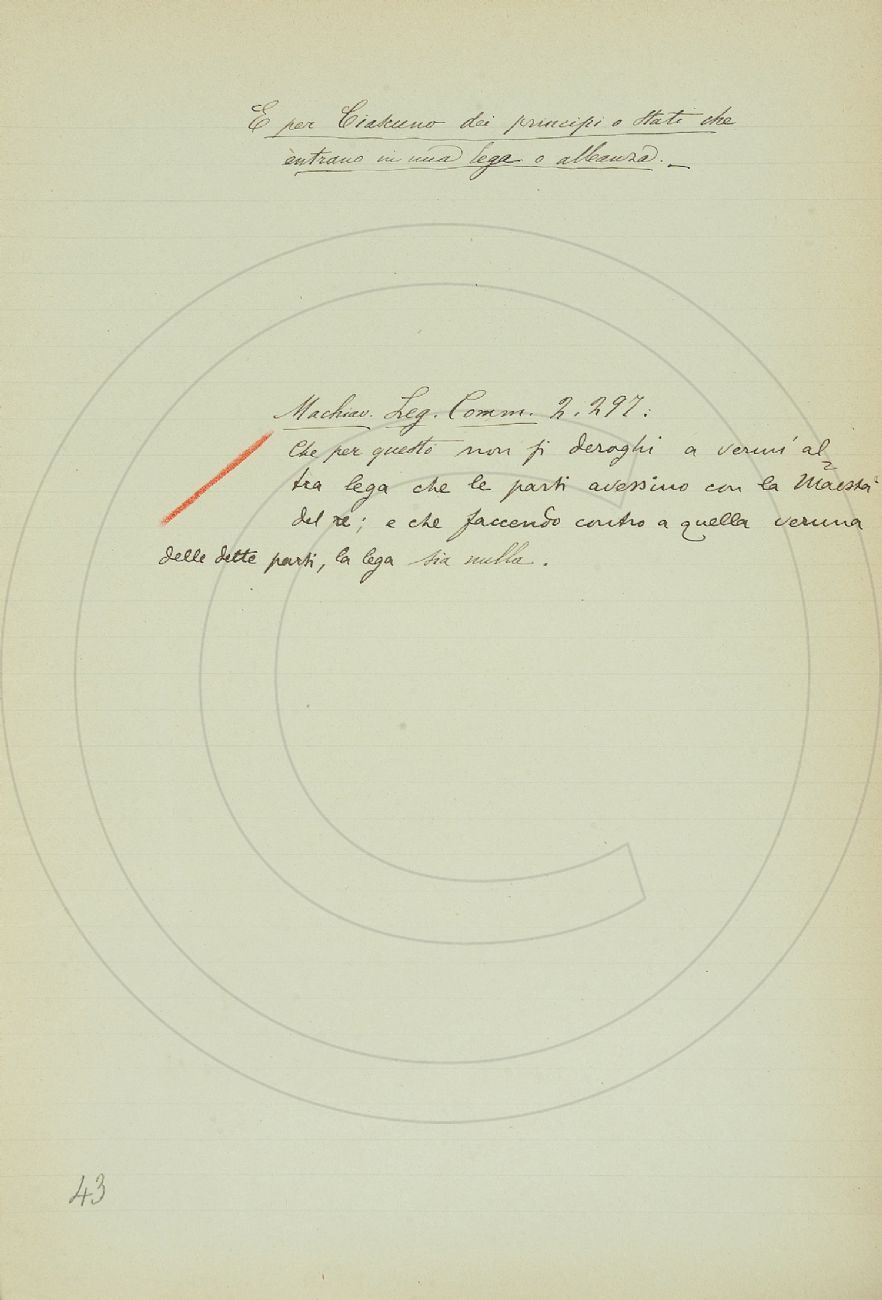 E per Ciascuno dei principi o stati che
entrano in una lega o alleanza. _
Machiav. Leg. Comm. 2. 297:
Che per questo non si deroghi a verun' al=
tra lega che le parti avessino con la Maestà
del re; e che faccendo contro a quella veruna
delle dette parti, la lega sia nulla.
43